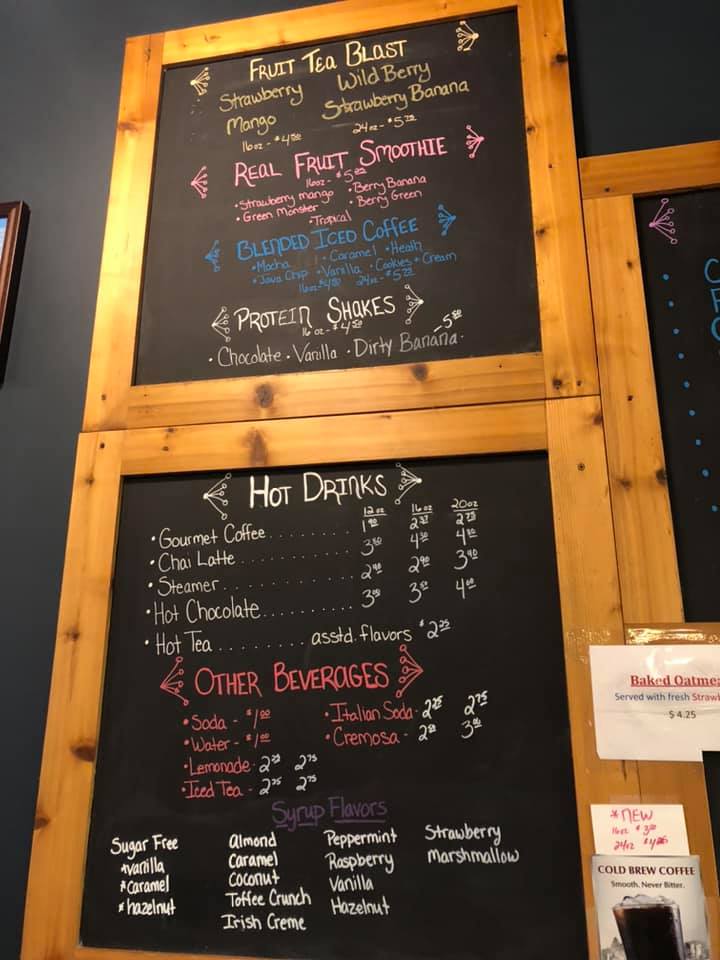 FRUIT TEA BLAST
Strawberry Wild Berry
Mango Strawberry Banana
16oz - $4.50 24oz - $5.25
REAL FRUIT SMOOTHIE
16oz - $5.25
• Strawberry mango • Berry Banana
• Green Monster • Berry Green
• Tropical
BLENDED ICED COFFEE
• Mocha • Caramel • Heath
• Java Chip • Vanilla • Cookies + Cream
16oz - $4.50 24oz - $5.25
PROTEIN SHAKES
16 oz - $4.50
• Chocolate • Vanilla • Dirty Banana - 5.50
HOT DRINKS
12oz 16oz 20oz
• Gourmet Coffee 1.90 2.75
• Chai Latte 3.80 4.30 4.80
• Steamer 2.40 2.90 3.40
• Hot Chocolate 3.00 3.50 4.00
• Hot Tea asstd. flavors $2.25
OTHER BEVERAGES
• Soda - $1.00 • Italian Soda - 2.25 2.75
• Water - $1.00 • Cremosa - 2.50 3.00
• Lemonade - 2.25 2.75
• Iced Tea - 2.25 2.75
Syrup Flavors
Sugar Free Almond Peppermint Strawberry
*vanilla Caramel Raspberry Marshmallow
*caramel Coconut Vanilla
*hazelnut Toffee Crunch Hazelnut
Irish Creme
Baked Oatmea
Served with fresh Straw
$ 4.25
*NEW
16oz $3
24oz
COLD BREW COFFEE
Smooth. Never Bitter.